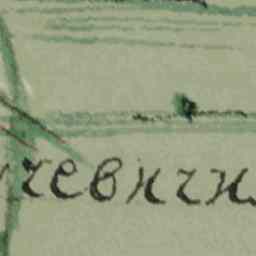 чевичи